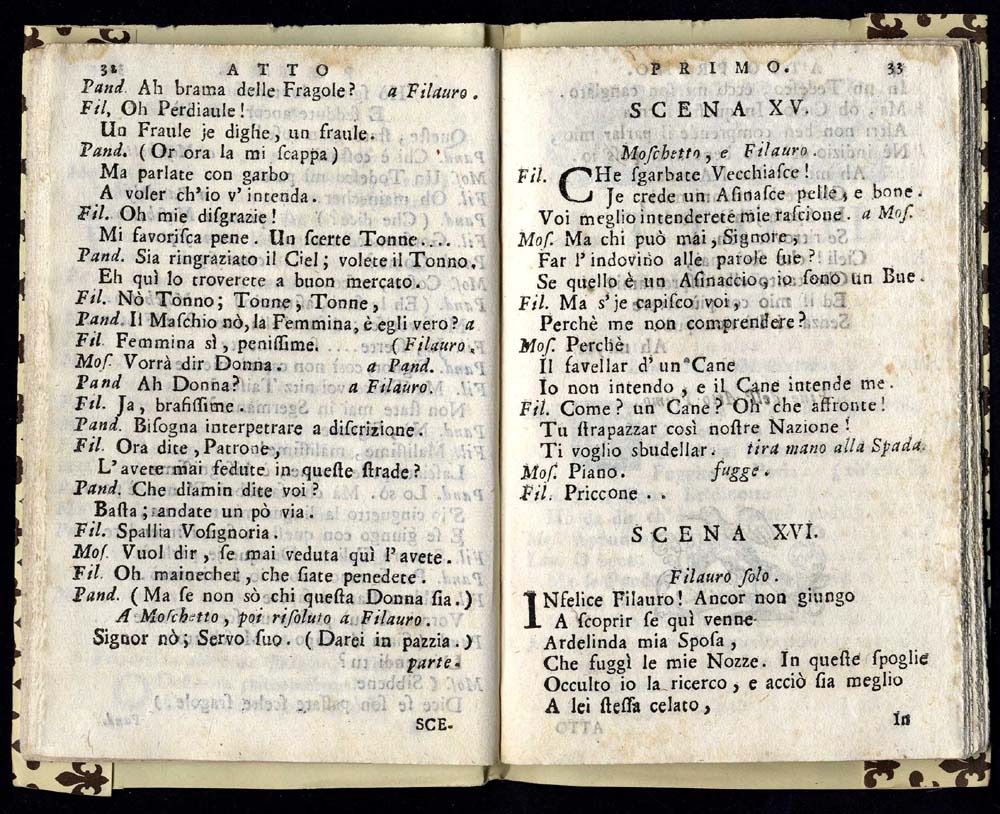 32 ATTO
Pand. Ah brama delle Fragole? a Filauro.
Fil, Oh Perdiaule!
Un Fraule je dighe, un fraule.
Pand. (Or ora la mi scappa)
Ma parlate con garbo
A voler ch'io v'intenda.
Fil. Oh mie diſgrazie!
Mi favoriſca pene. Un ſcerte Tonne....
Pand. Sia ringraziato il Ciel; volete il Tonno.
Eh quì lo troverete a buon mercato.
Fil. Nò Tonno; Tonne, Tonne,
Pand. Il Maſchio nò, la Femmina, è egli vero? a
Fil. Femmina sì, peniſſime. (Filauro.
Moſ. Vorrà dir Donna. a Pand.
Pand Ah Donna? a Filauro.
Fil. Ja, brafiſſime.
Pand. Biſogna interpetrare a diſcrizione.
Fil. Ora dite, Patrone,
L'avete mai fedute in queſte ſtrade?
Pand. Che diamin dite voi?
Baſta; andate un pò via.
Fil. Spallia Voſignoria.
Moſ. Vuol dir, ſe mai veduta quì l'avete.
Fil. Oh mainecherr, che ſiate penedete.
Pand. (Ma ſe non sò chi queſta Donna ſia.)
A Moſchetto, poi riſoluto a Filauro.
Signor nò, Servo ſuo. (Darei in pazzia.)
parte.
SCE-
PRIMO. 33
SCENA XV.
Moſchetto, e Filauro.
Fil. CHe ſgarbate Vecchiaſce!
Je crede un Aſinaſce pelle, e bone.
Voi meglio intenderete mie raſcione. a Moſ.
Moſ. Ma chi può mai, Signore,
Far l'indovino alle parole ſue?
Se quello è un Aſinaccio, io ſono un Bue.
Fil. Ma s'je capiſco voi,
Perchè me non comprendere?
Moſ. Perchè
Il favellar d'un Cane
Io non intendo, e il Cane intende me.
Fil. Come? un Cane? Oh che affronte!
Tu ſtrapazzar così noſtre Nazione!
Ti voglio sbudellar. tira mano alla Spada.
Moſ. Piano. fugge.
Fil. Priccone..
SCENA XVI.
Filauro ſolo.
INfelice Filauro! Ancor non giungo
A ſcoprir ſe quì venne
Ardelinda mia Spoſa,
Che fuggì le mie Nozze. In queſte ſpoglie
Occulto io la ricerco, e acciò ſia meglio
A lei ſteſſa celato,
In